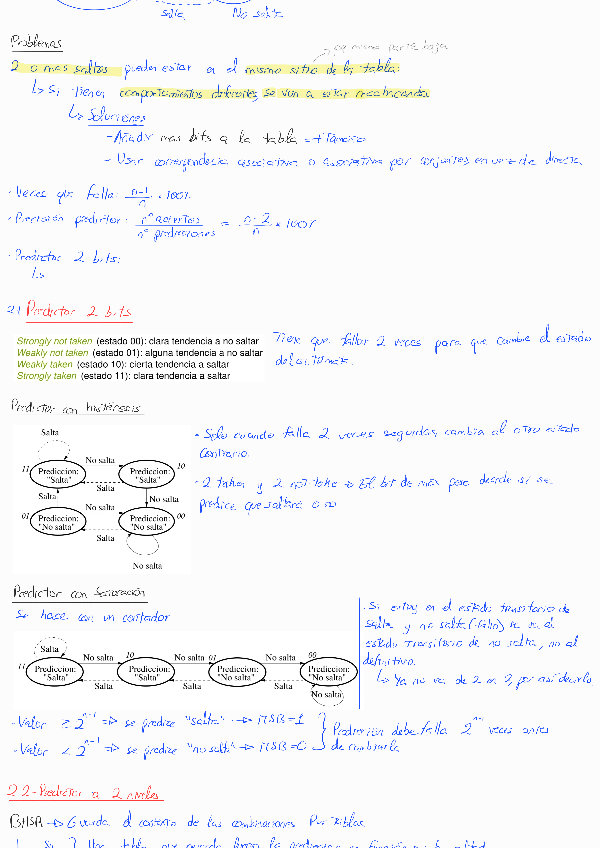 salta No salta
Problemas
misma parte baja
2 o mas saltos pueden estar en el mismo sitio de la tabla.
↳ Si tienen comportamientos diferentes, se van a estar machacando
↳ Soluciones
- Añadir mas bits a la tabla = + tamaño
- Usar correspondencia asociativa o asociativa por conjuntos en vez de directa
· Veces que falla: n-1/n · 100%
· Precisión predictor: nº aciertos/nº predicciones = n-2/n × 100%
· Predictor 2 bits:
↳
2.1 Predictor 2 bits
Strongly not taken (estado 00): clara tendencia a no saltar
Weakly not taken (estado 01): alguna tendencia a no saltar
Weakly taken (estado 10): cierta tendencia a saltar
Strongly taken (estado 11): clara tendencia a saltar
Tiene que fallar 2 veces para que cambie el estado
del
Predictor con histéresis
Salta
11 Prediccion: "Salta"
No salta
10 Prediccion: "Salta"
Salta
Salta
No salta
01 Prediccion: "No salta"
No salta
Salta
00 Prediccion: "No salta"
No salta
· Solo cuando falla 2 veces seguidas, cambia al otro estado
contrario.
· 2 taken y 2 not take → El bit de más peso decide si se
predice que saltará o no
Predictor con Saturación
Se hace con un contador
Salta
11 Prediccion: "Salta"
No salta
Salta
10 Prediccion: "Salta"
No salta
Salta
01 Prediccion: "No salta"
No salta
Salta
00 Prediccion: "No salta"
No salta
· Si estoy en el estado transitorio de
salta y no salta (-fallo) se va al
estado transitorio de no salta, no al
definitivo.
↳ Ya no va de 2 en 2, por así decirlo
- Valor ≥ 2^n-1 => se predice "salta" → MSB=1
- Valor < 2^n-1 => se predice "no salta" → MSB=0
Prediccion debe fallar 2^n-1 veces antes
de cambiarla
2.2- Predictor a 2 niveles
→ Guarda el contexto de las combinaciones